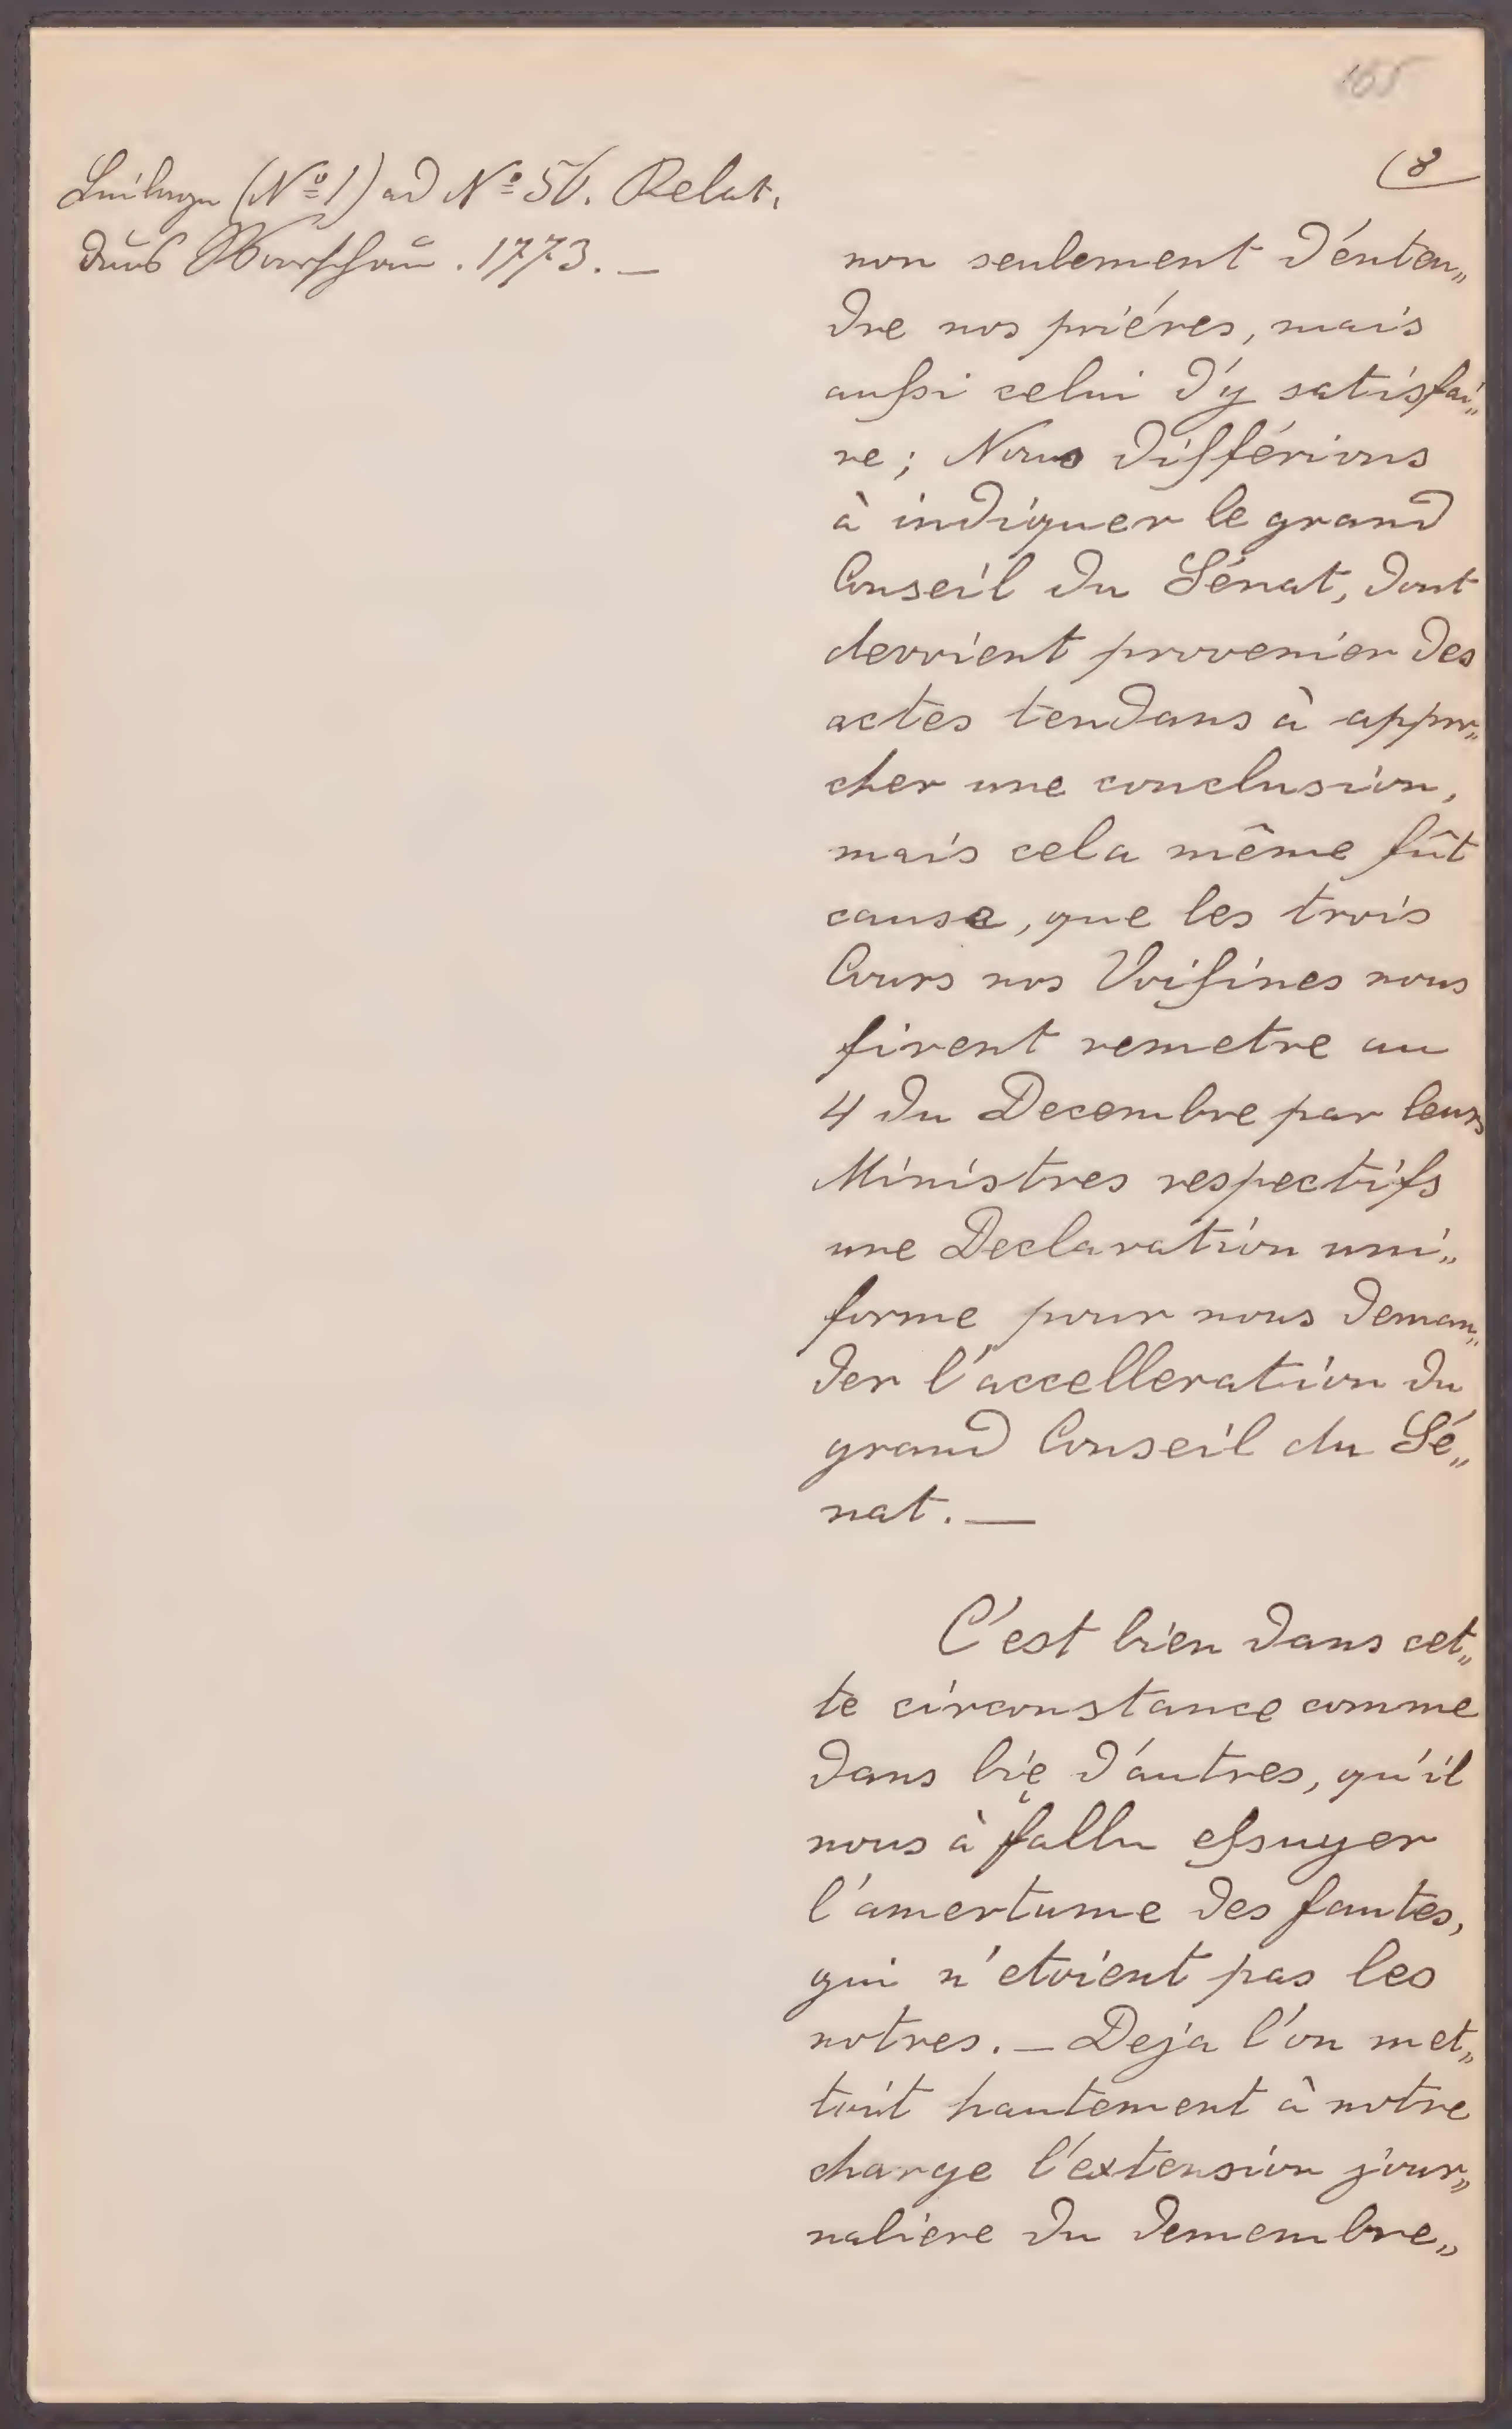 165
(8
Beilage (Nº 1) ad Nº 56. Relat.
aus Warschau. 1773. —
non seulement d'enten„
dre nos priéres, mais
aussi celui d'y satisfai„
re; Nous différions
à indiquer le grand
Conseil du Sénat, dont
devoient provenier des
actes tendans à appro„
cher une conclusion,
mais cela même fût
cause, que les trois
Cours nos Voisines nous
firent remetre au
4 du Decembre par leurs
Ministres respectifs
une Declaration uni„
forme pour nous deman„
der l'accelleration du
grand Conseil du Sé„
nat. —
C'est bien dans cet„
te circonstance comme
dans bie d'autres, qu'il
nous à fallu essuyer
l'amertume des fautes,
qui n'etoient pas les
notres. — Deja l'on met„
toit hautement à notre
charge l'extension jour„
naliere du demembre„